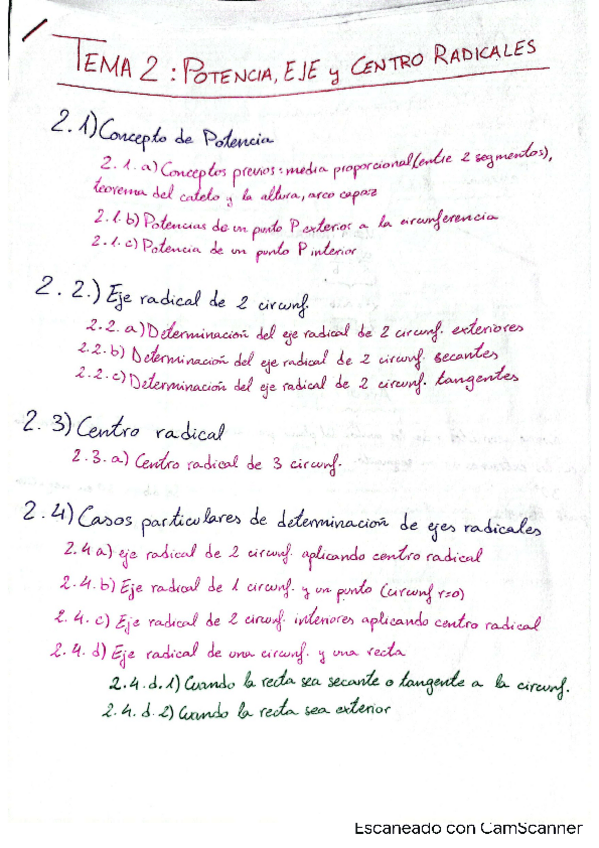 TEMA 2: POTENCIA, EJE y CENTRO RADICALES
2.1) Concepto de Potencia
2.1.a) Conceptos previos: media proporcional (entre 2 segmentos),
teorema del cateto y la altura, arco capaz
2.1.b) Potencias de un punto P exterior a la circunferencia
2.1.c) Potencia de un punto P interior
2.2.) Eje radical de 2 circunf.
2.2.a) Determinación del eje radical de 2 circunf. exteriores
2.2.b) Determinación del eje radical de 2 circunf. secantes
2.2.c) Determinación del eje radical de 2 circunf. tangentes
2.3) Centro radical
2.3.a) Centro radical de 3 circunf.
2.4) Casos particulares de determinación de ejes radicales
2.4 a) eje radical de 2 circunf. aplicando centro radical
2.4.b) Eje radical de 1 circunf. y un punto (circunf r=0)
2.4.c) Eje radical de 2 circunf. interiores aplicando centro radical
2.4.d) Eje radical de una circunf. y una recta
2.4.d.1) Cuando la recta sea secante o tangente a la circunf.
2.4.d.2) Cuando la recta sea exterior
Escaneado con CamScanner